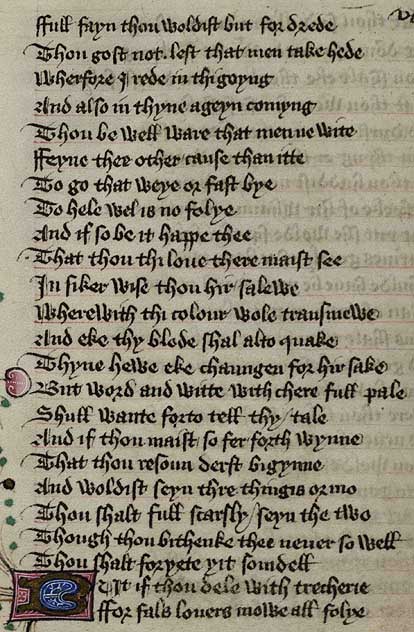 ffull fayn thou woldist but for drede
Thou gost not . lest that men take hede
Wherfore I rede in thi goyng
And also in thyne ageyn comyng
Thou be well ware that men ne wite
ffeyne thee other cause than itte
To go that weye or fast bye
To hele wel is no folye
And if so be it happe thee
That thou thi loue there maist see
In siker wise thou hir salewe
Wherewith thi colour wole transmewe
And eke thy blode shal al to quake
Thyne hewe eke chaungen for hir sake
But word and witte with chere full pale
Shull wante forto tell thy / tale
And if thou maist so fer forth wynne
That thou resoun derst bigynne
And woldist seyn thre thingis or mo
Thou shalt full scarsly / seyn the two
Though thou bithenke thee neuer so well
Thou shalt foryete yit somdell
BUt if thou dele with trecherie
ffor fals louers mowe all folye